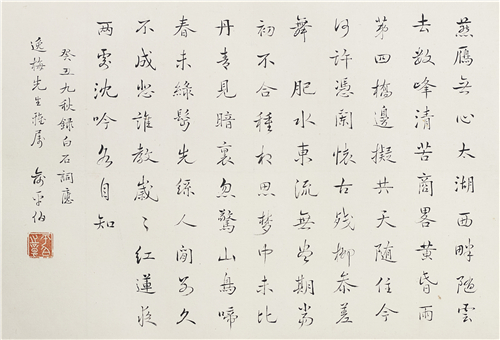 燕鴈無心太湖西畔隨雲
去數峰清苦商畧黃昏雨
第四橋邊擬共天隨住今
何許憑闌懷古殘柳參差
舞 肥水東流無盡期當
初不合種相思夢中未比
丹青見暗裏忽驚山鳥啼
春未綠鬢先絲人間別久
不成悲誰教歲〻紅蓮夜
兩處沈吟各自知
癸丑九秋錄白石詞應
逸梅先生雅屬 俞平伯